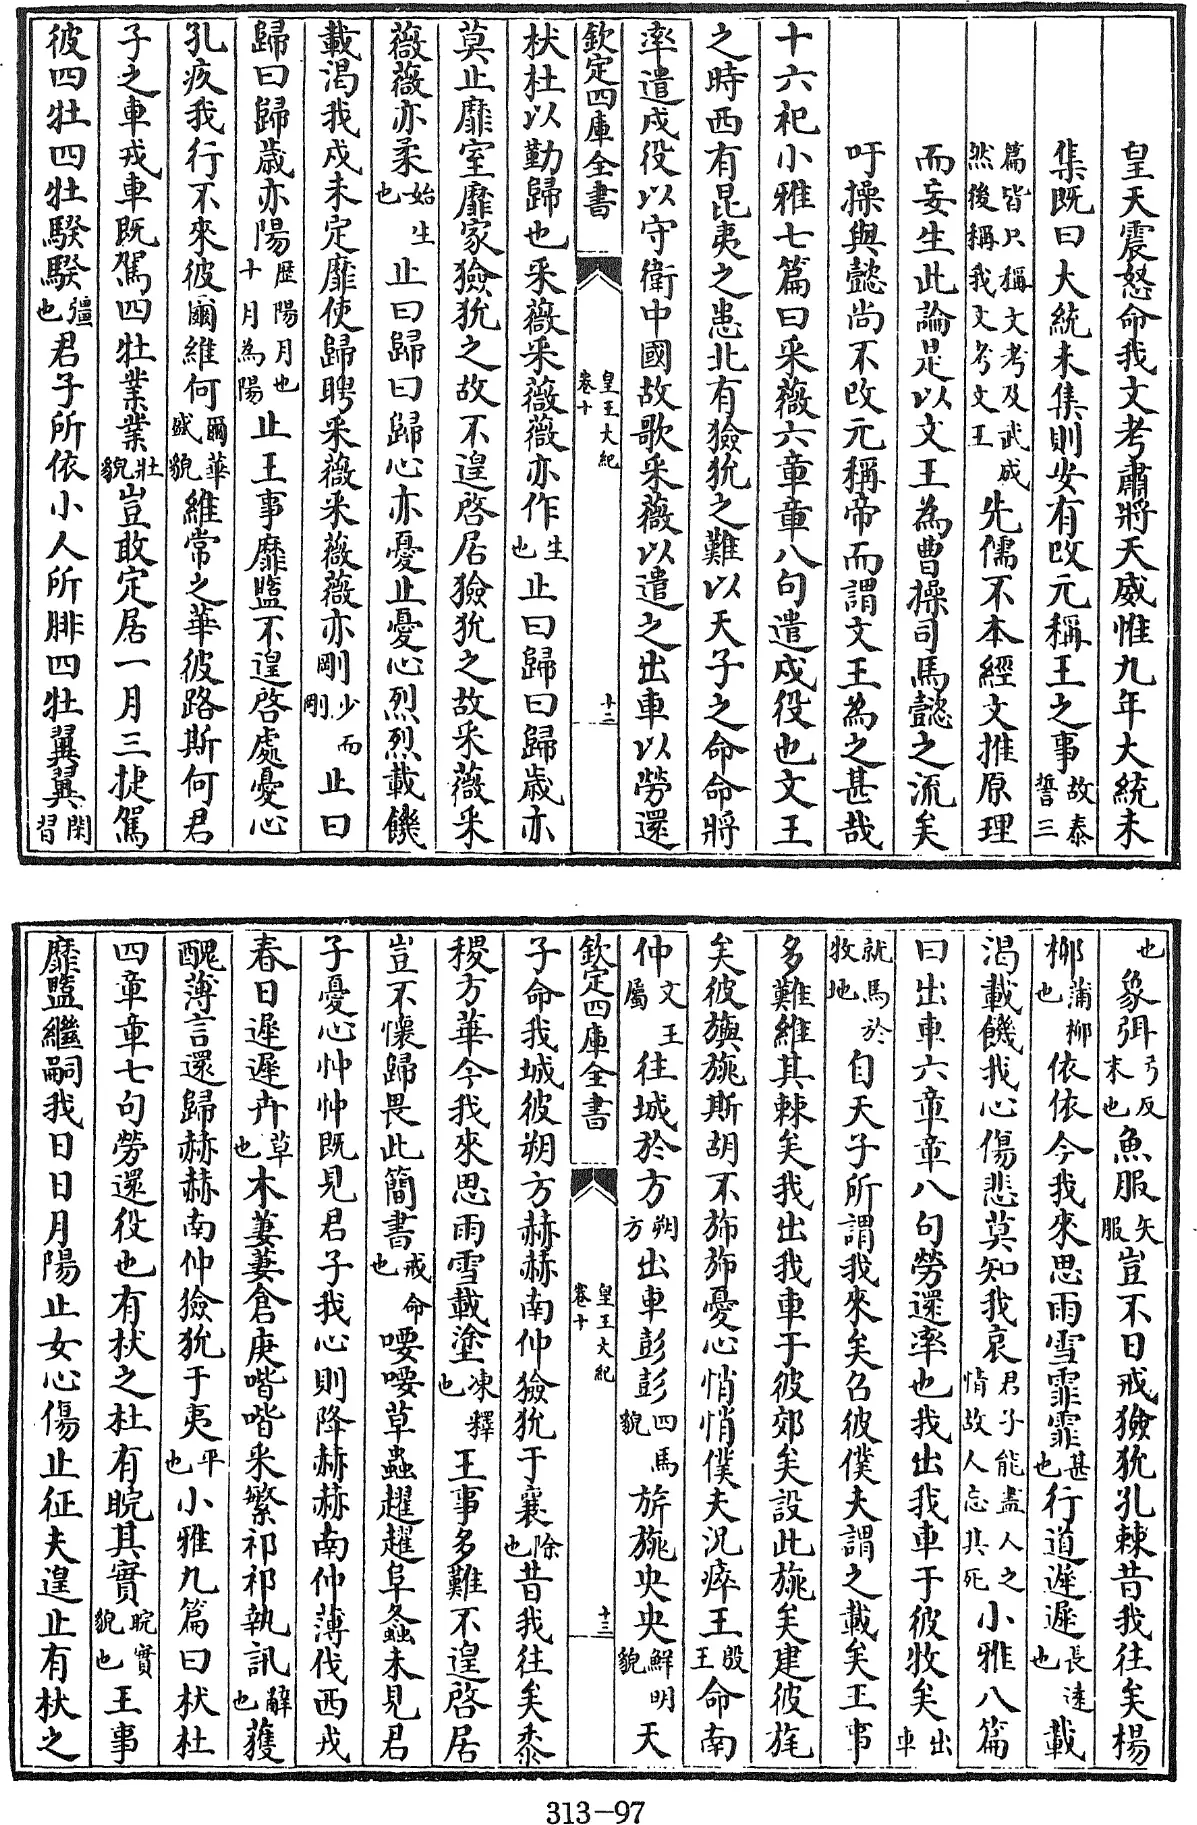 皇天震怒命我文考肅將天威惟九年大統未
集既曰大統未集則安有改元稱王之事故泰誓三
篇皆只稱文考及武成然後稱我文考文王先儒不本經文推原理
而妄生此論是以文王為曹操司馬懿之流矣
吁操與懿尚不改元稱帝而謂文王為之甚哉
十六祀小雅七篇曰采薇六章章八句遣戍役也文王
之時西有昆夷之患北有獫狁之難以天子之命命將
率遣戍役以守衛中國故歌采薇以遣之出車以勞還
欽定四庫全書 皇王大紀 卷十 十二
杕杜以勤歸也采薇采薇薇亦作生也止曰歸曰歸歲亦
莫止靡室靡家獫狁之故不遑啓居獫狁之故采薇采
薇薇亦柔始生也止曰歸曰歸心亦憂止憂心烈烈載饑
載渴我戍未定靡使歸聘采薇采薇薇亦剛少而剛止曰
歸曰歸歲亦陽歷陽月也十月為陽止王事靡盬不遑啓處憂心
孔疚我行不來彼爾維何爾華盛貌維常之華彼路斯何君
子之車戎車既駕四牡業業壯貌豈敢定居一月三捷駕
彼四牡四牡騤騤彊也君子所依小人所腓四牡翼翼閑習
也象弭弓反末也魚服矢服豈不日戒獫狁孔棘昔我往矣楊
柳蒲柳也依依今我來思雨雪霏霏甚也行道遲遲長遠也載
渴載饑我心傷悲莫知我哀君子能盡人之情故人忘其死小雅八篇
曰出車六章章八句勞還率也我出我車于彼牧矣出車
就馬於牧地自天子所謂我來矣召彼僕夫謂之載矣王事
多難維其棘矣我出我車于彼郊矣設此旐矣建彼旄
矣彼旟旐斯胡不旆旆憂心悄悄僕夫況瘁王殷王命南
仲文王屬往城於方朔方出車彭彭四馬貌旂旐央央鮮明貌天
欽定四庫全書 皇王大紀 卷十 十三
子命我城彼朔方赫赫南仲獫狁于襄除也昔我往矣黍
稷方華今我來思雨雪載塗凍釋也王事多難不遑啓居
豈不懷歸畏此簡書戒命也喓喓草蟲趯趯阜螽未見君
子憂心忡忡既見君子我心則降赫赫南仲薄伐西戎
春日遲遲卉草也木萋萋倉庚喈喈采繁祁祁執訊辭也獲
醜薄言還歸赫赫南仲獫狁于夷平也小雅九篇曰杕杜
四章章七句勞還役也有杕之杜有睆其實睆實貌也王事
靡盬繼嗣我日日月陽止女心傷止征夫遑止有杕之
313-97